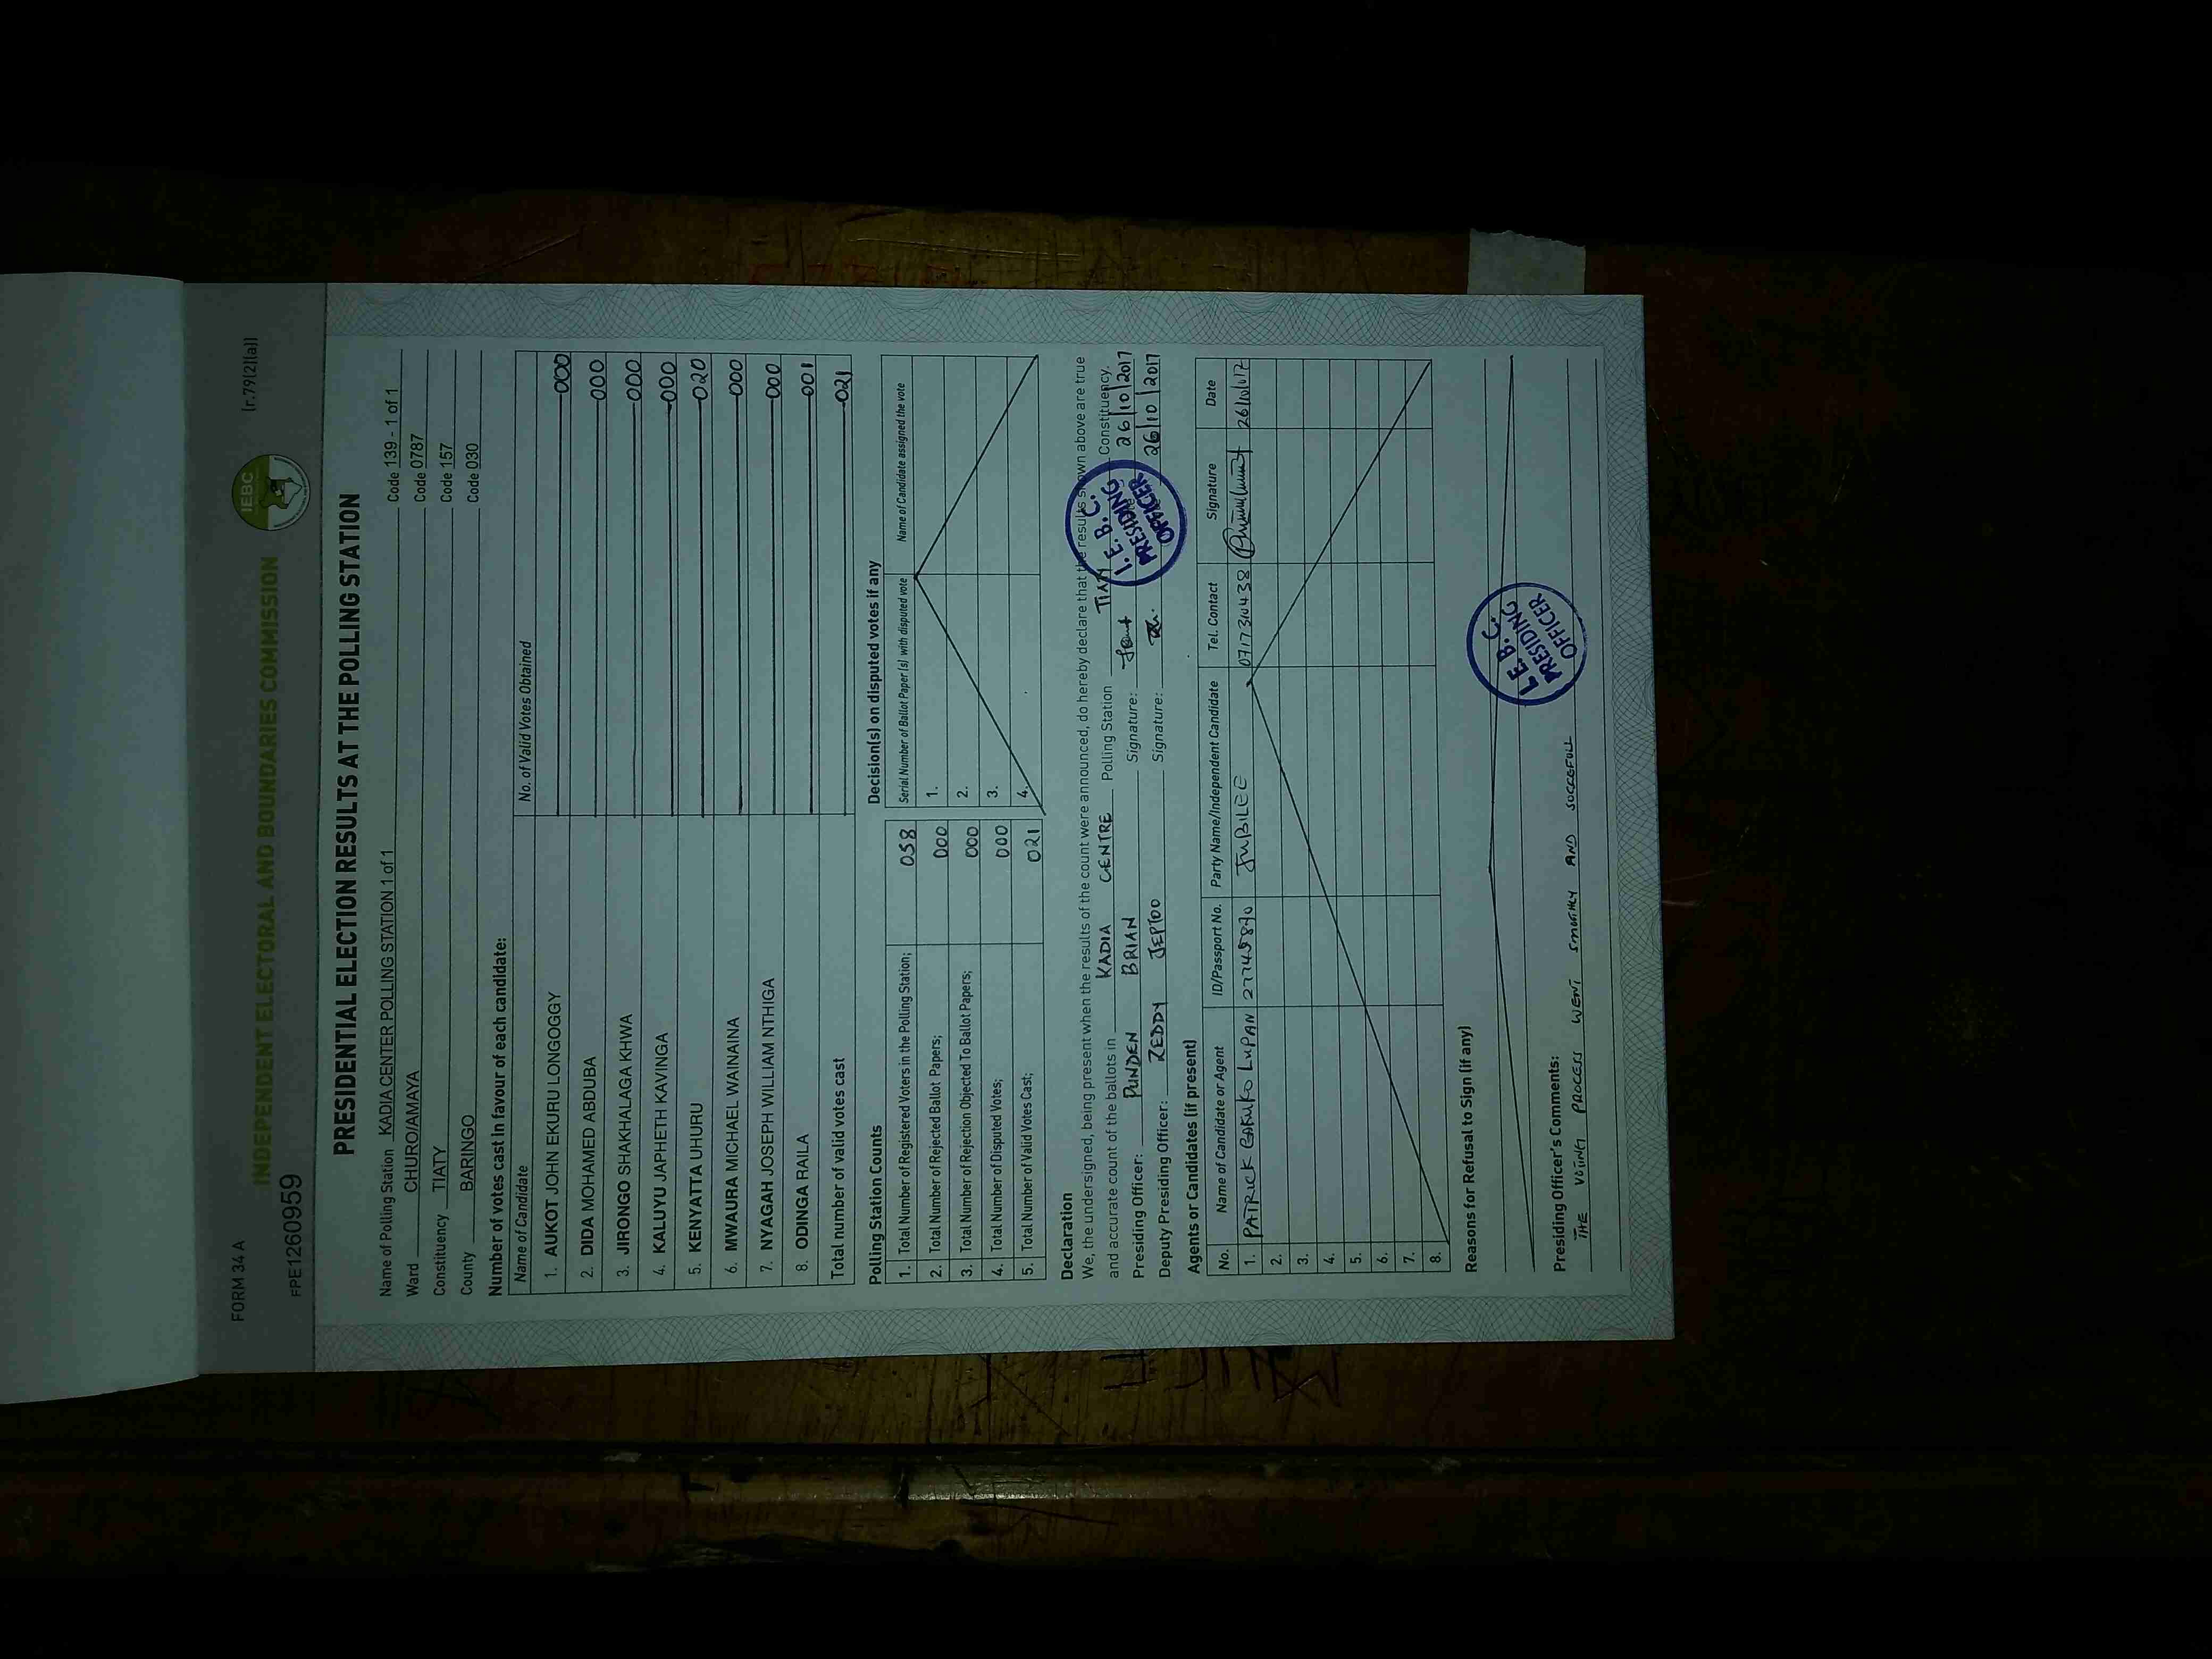 FORM 34 A
(r.79(2)(a))
IEBC
INDEPENDENT ELECTORAL AND BOUNDARIES COMMISSION
FPE1260959
PRESIDENTIAL ELECTION RESULTS AT THE POLLING STATION
Name of Polling Station KADIA CENTER POLLING STATION 1 of 1 Code 139 - 1 of 1
Ward CHURO/AMAYA Code 0787
Constituency TIATY Code 157
County BARINGO Code 030
Number of votes cast in favour of each candidate:
Name of Candidate No. of Valid Votes Obtained
1. AUKOT JOHN EKURU LONGOGGY 000
2. DIDA MOHAMED ABDUBA 000
3. JIRONGO SHAKHALAGA KHWA 000
4. KALUYU JAPHETH KAVINGA 000
5. KENYATTA UHURU 020
6. MWAURA MICHAEL WAINAINA 000
7. NYAGAH JOSEPH WILLIAM NTHIGA 000
8. ODINGA RAILA 001
Total number of valid votes cast 021
Polling Station Counts
1. Total Number of Registered Voters in the Polling Station; 058
2. Total Number of Rejected Ballot Papers; 000
3. Total Number of Rejection Objected To Ballot Papers; 000
4. Total Number of Disputed Votes; 000
5. Total Number of Valid Votes Cast; 021
Decision(s) on disputed votes if any
Serial Number of Ballot Paper (s) with disputed vote Name of Candidate assigned the vote
1.
2.
3.
4.
Declaration
We, the undersigned, being present when the results of the count were announced, do hereby declare that the results shown above are true
and accurate count of the ballots in KADIA CENTRE Polling Station TIATY Constituency.
Presiding Officer: PUNDEN BRIAN Signature: 26/10/2017
Deputy Presiding Officer: ZEDDY JEPTOO Signature: 26/10/2017
I.E.B.C.
PRESIDING
OFFICER
Agents or Candidates (if present)
No. Name of Candidate or Agent ID/Passport No. Party Name/Independent Candidate Tel. Contact Signature Date
1. PATRICK LUPAN JUBILEE 26/10/017
2.
3.
4.
5.
6.
7.
8.
Reasons for Refusal to Sign (if any)
I.E.B.C.
PRESIDING
OFFICER
Presiding Officer's Comments:
THE VOTING PROCESS WENT SMOTHLY AND SUCCEFULL